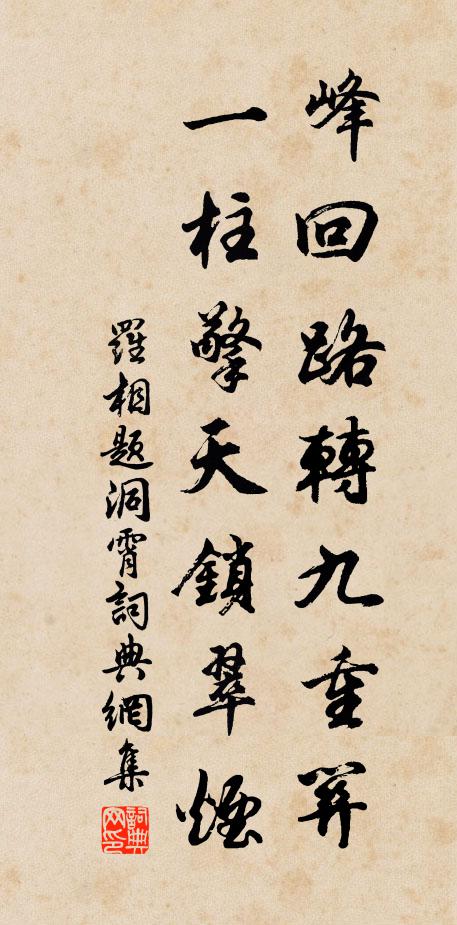 峰回路轉九重
一柱擎天鎖翠煙
羅相題洞霄詞典網集
詞典
网印